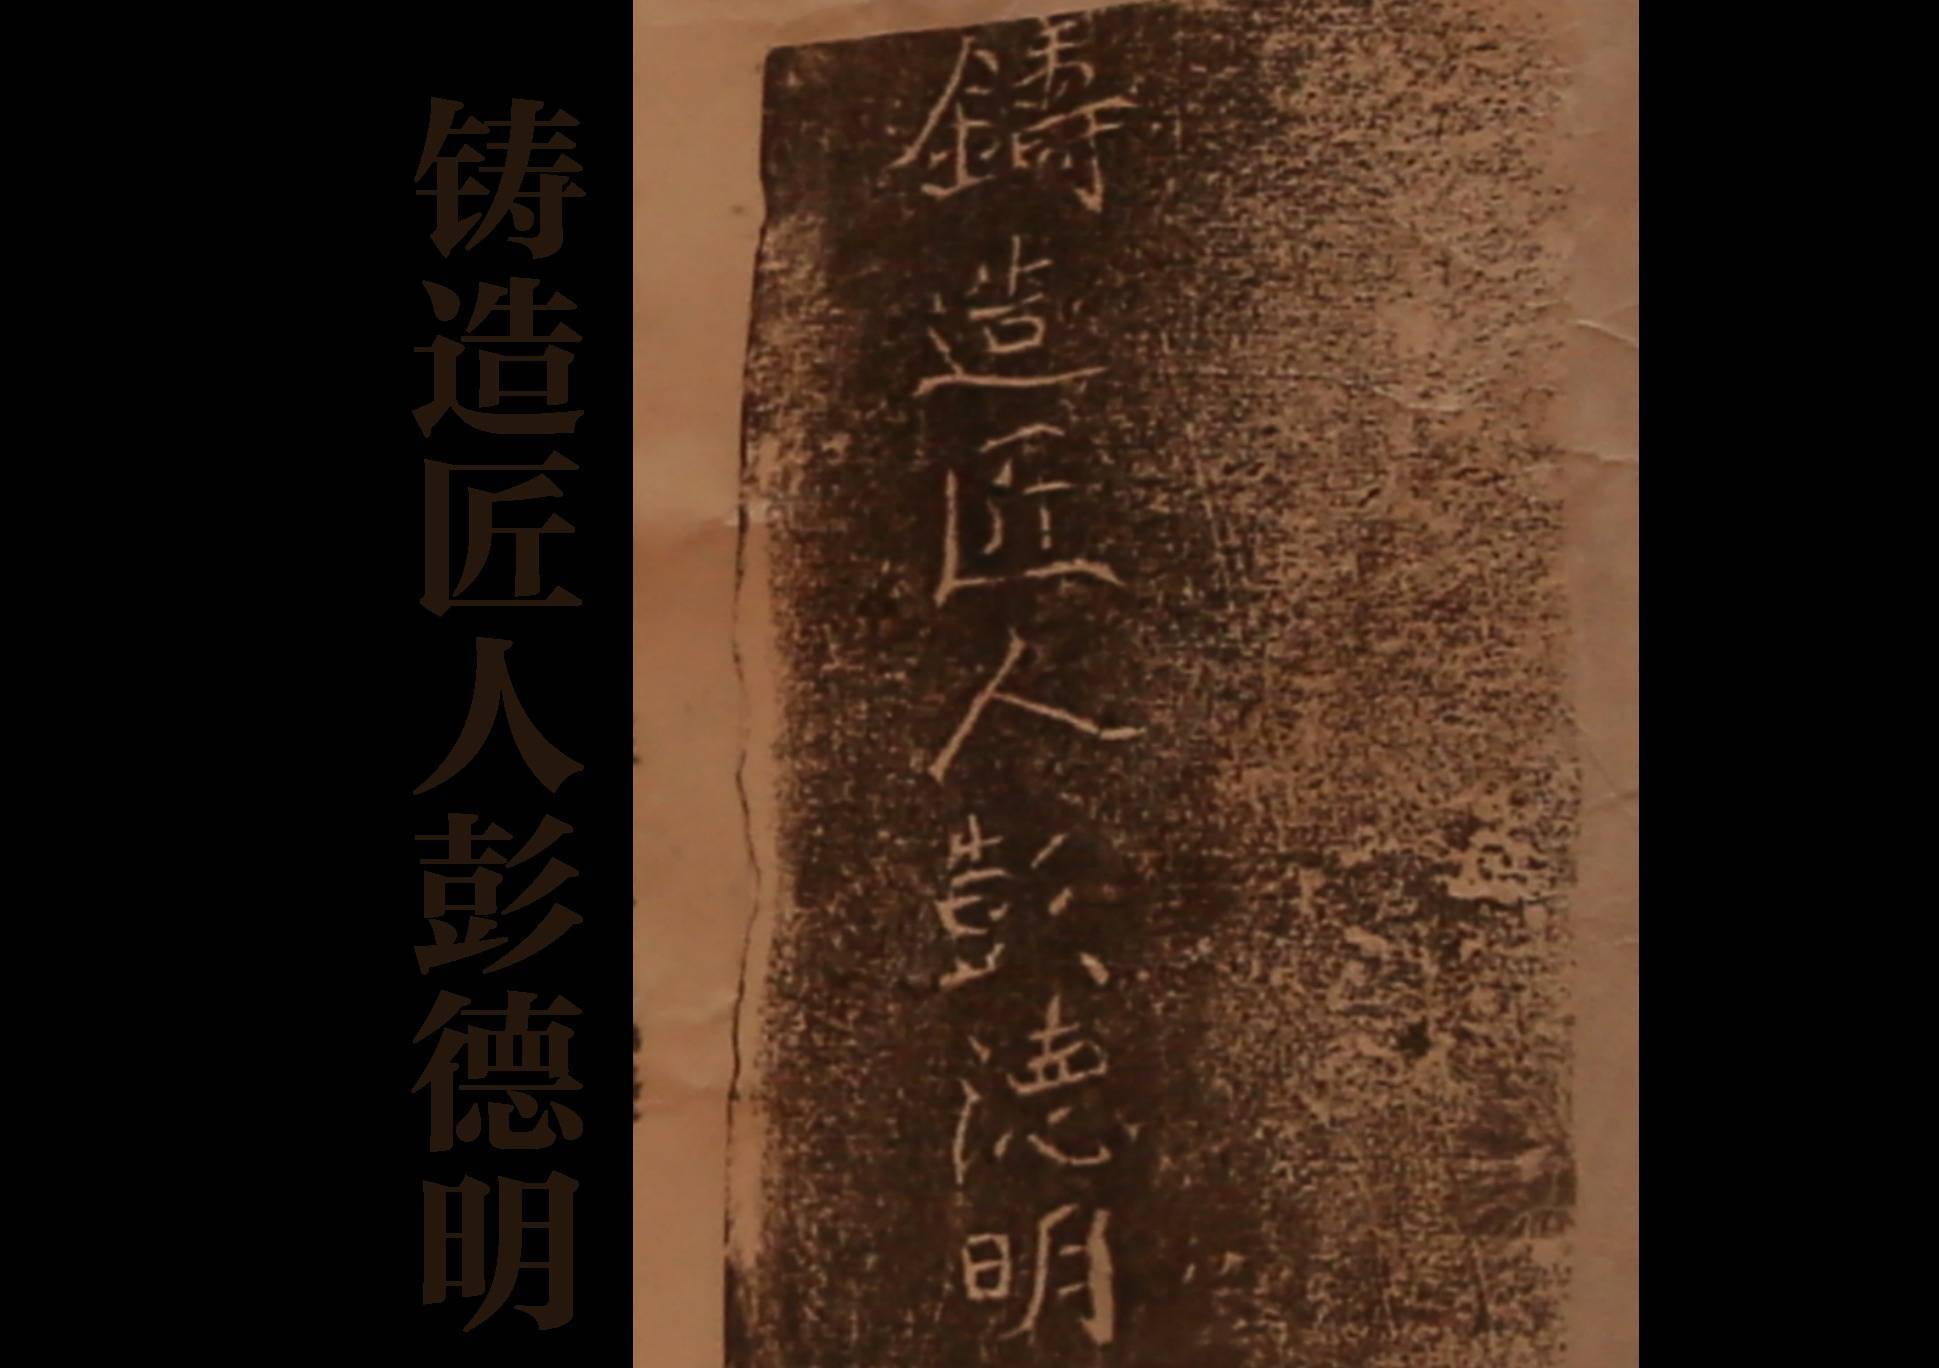 鑄造匠人彭德明
铸造匠人彭德明